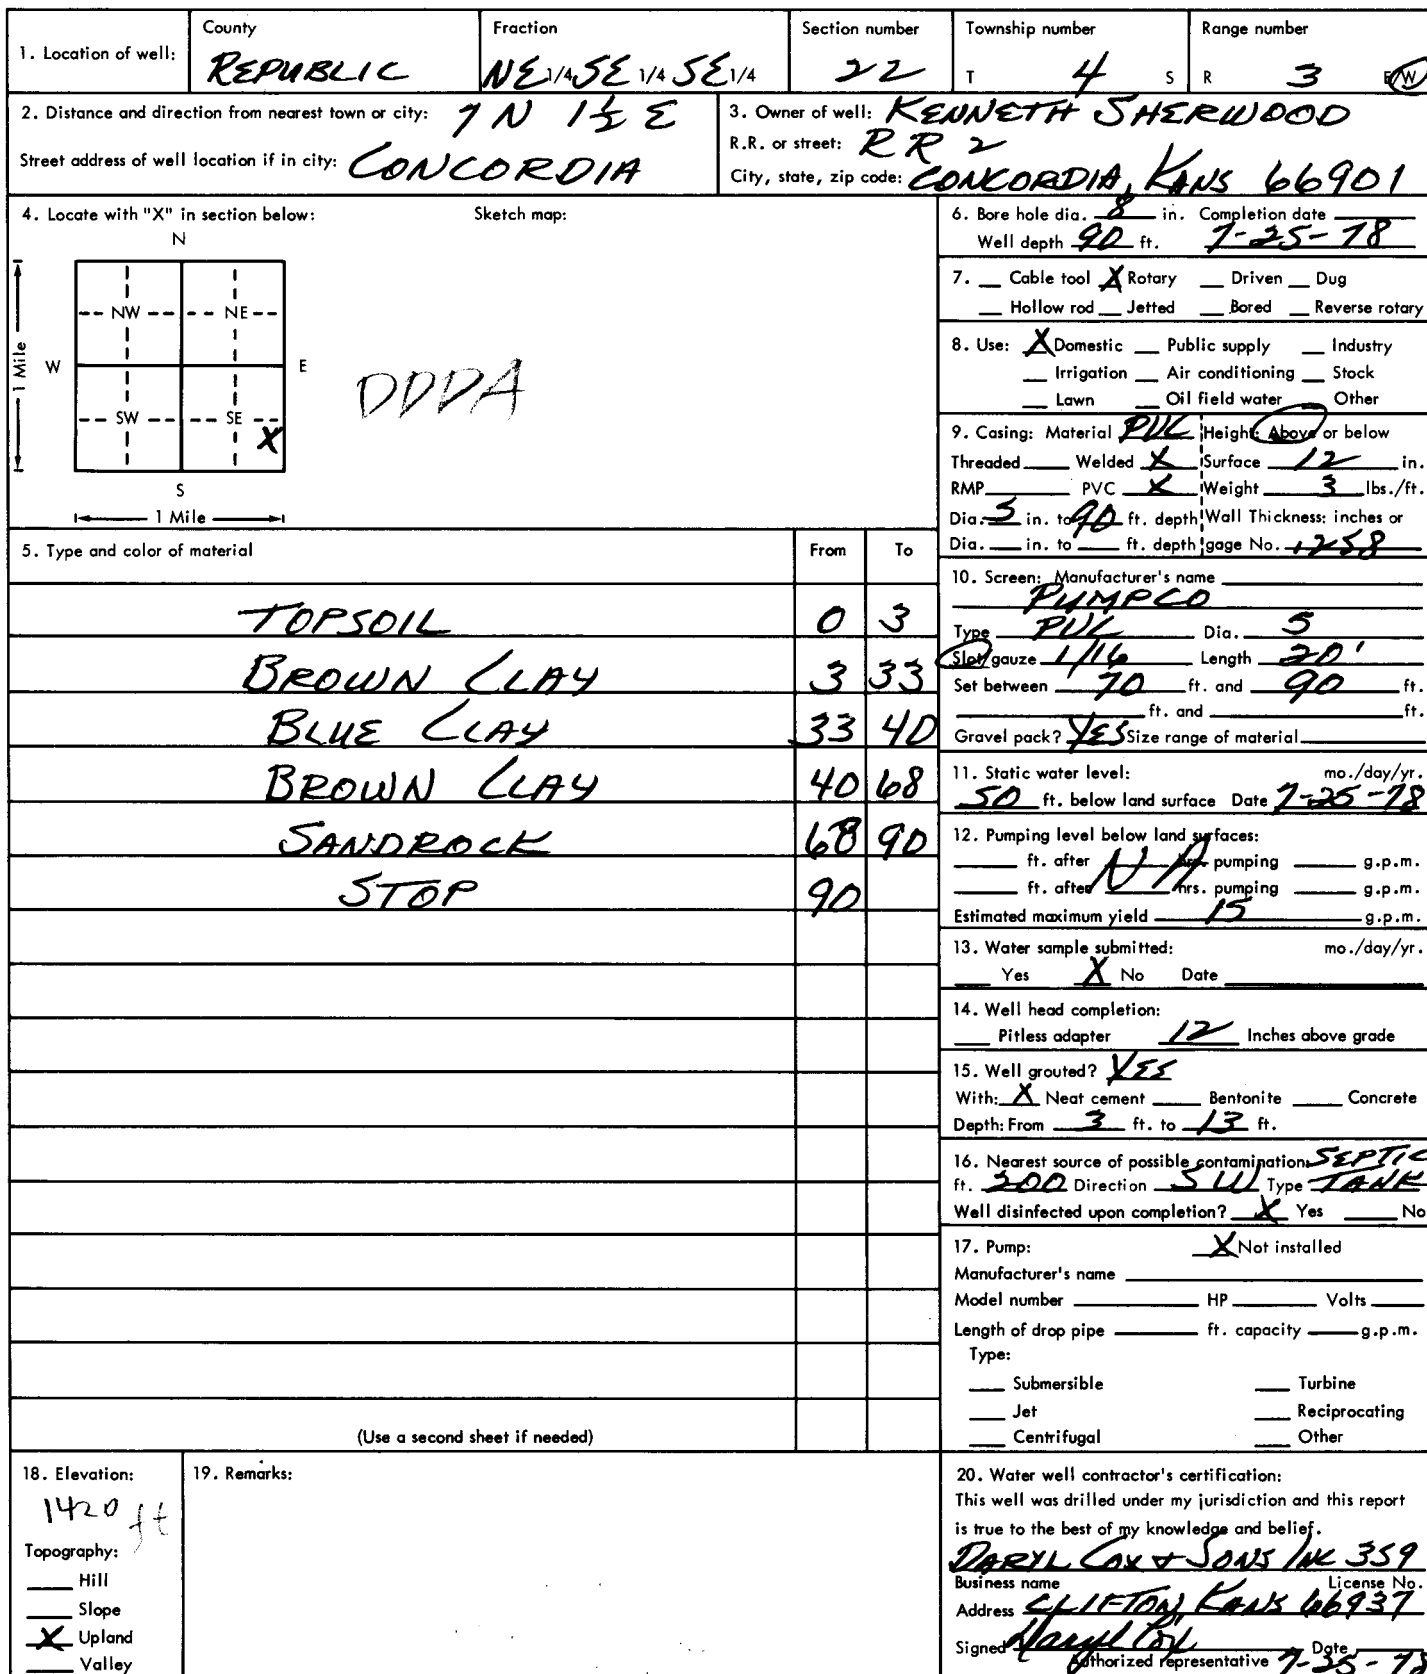 County Fraction Section number Township number Range number
1. Location of well: REPUBLIC NE 1/4 SE 1/4 SE 1/4 22 T 4 S R 3 E/W
2. Distance and direction from nearest town or city: 7 N 1½ E
Street address of well location if in city: CONCORDIA
3. Owner of well: KENNETH SHERWOOD
R.R. or street: RR 2
City, state, zip code: CONCORDIA, KANS 66901
4. Locate with "X" in section below: Sketch map:
N
NW NE
W E
1 Mile
SW SE X
S
1 Mile
DDDA
5. Type and color of material From To
TOPSOIL 0 3
BROWN CLAY 3 33
BLUE CLAY 33 40
BROWN CLAY 40 68
SANDROCK 68 90
STOP 90
(Use a second sheet if needed)
6. Bore hole dia. 8 in. Completion date
Well depth 90 ft. 7-25-78
7. Cable tool X Rotary Driven Dug
Hollow rod Jetted Bored Reverse rotary
8. Use: X Domestic Public supply Industry
Irrigation Air conditioning Stock
Lawn Oil field water Other
9. Casing: Material PVC Height: Above or below
Threaded Welded X Surface 12 in.
RMP PVC X Weight 3 lbs./ft.
Dia. 5 in. to 90 ft. depth Wall Thickness: inches or
Dia. in. to ft. depth gage No. .258
10. Screen: Manufacturer's name
PUMPCO
Type PVC Dia. 5
Slot/gauze 1/16 Length 20'
Set between 70 ft. and 90 ft.
ft. and ft.
Gravel pack? YES Size range of material
11. Static water level: mo./day/yr.
50 ft. below land surface Date 7-25-78
12. Pumping level below land surfaces:
ft. after NA hrs. pumping g.p.m.
ft. after hrs. pumping g.p.m.
Estimated maximum yield 15 g.p.m.
13. Water sample submitted: mo./day/yr.
Yes X No Date
14. Well head completion:
Pitless adapter 12 Inches above grade
15. Well grouted? YES
With: X Neat cement Bentonite Concrete
Depth: From 3 ft. to 13 ft.
16. Nearest source of possible contamination: SEPTIC
ft. 200 Direction SW Type TANK
Well disinfected upon completion? X Yes No
17. Pump: X Not installed
Manufacturer's name
Model number HP Volts
Length of drop pipe ft. capacity g.p.m.
Type:
Submersible Turbine
Jet Reciprocating
Centrifugal Other
18. Elevation:
1420 ft
Topography:
Hill
Slope
X Upland
Valley
19. Remarks:
20. Water well contractor's certification:
This well was drilled under my jurisdiction and this report
is true to the best of my knowledge and belief.
DARYL COX & SONS INC 359
Business name License No.
Address CLIFTON, KANS 66937
Signed Daryl Cox Date
Authorized representative 7-25-78